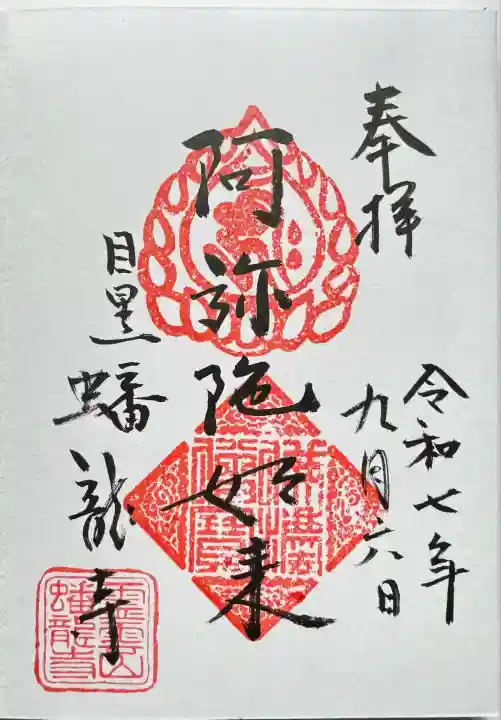 奉拝
令和七年
九月六日
阿弥陀如来
目黒
蟠龍寺
霊雲山
蟠龍寺